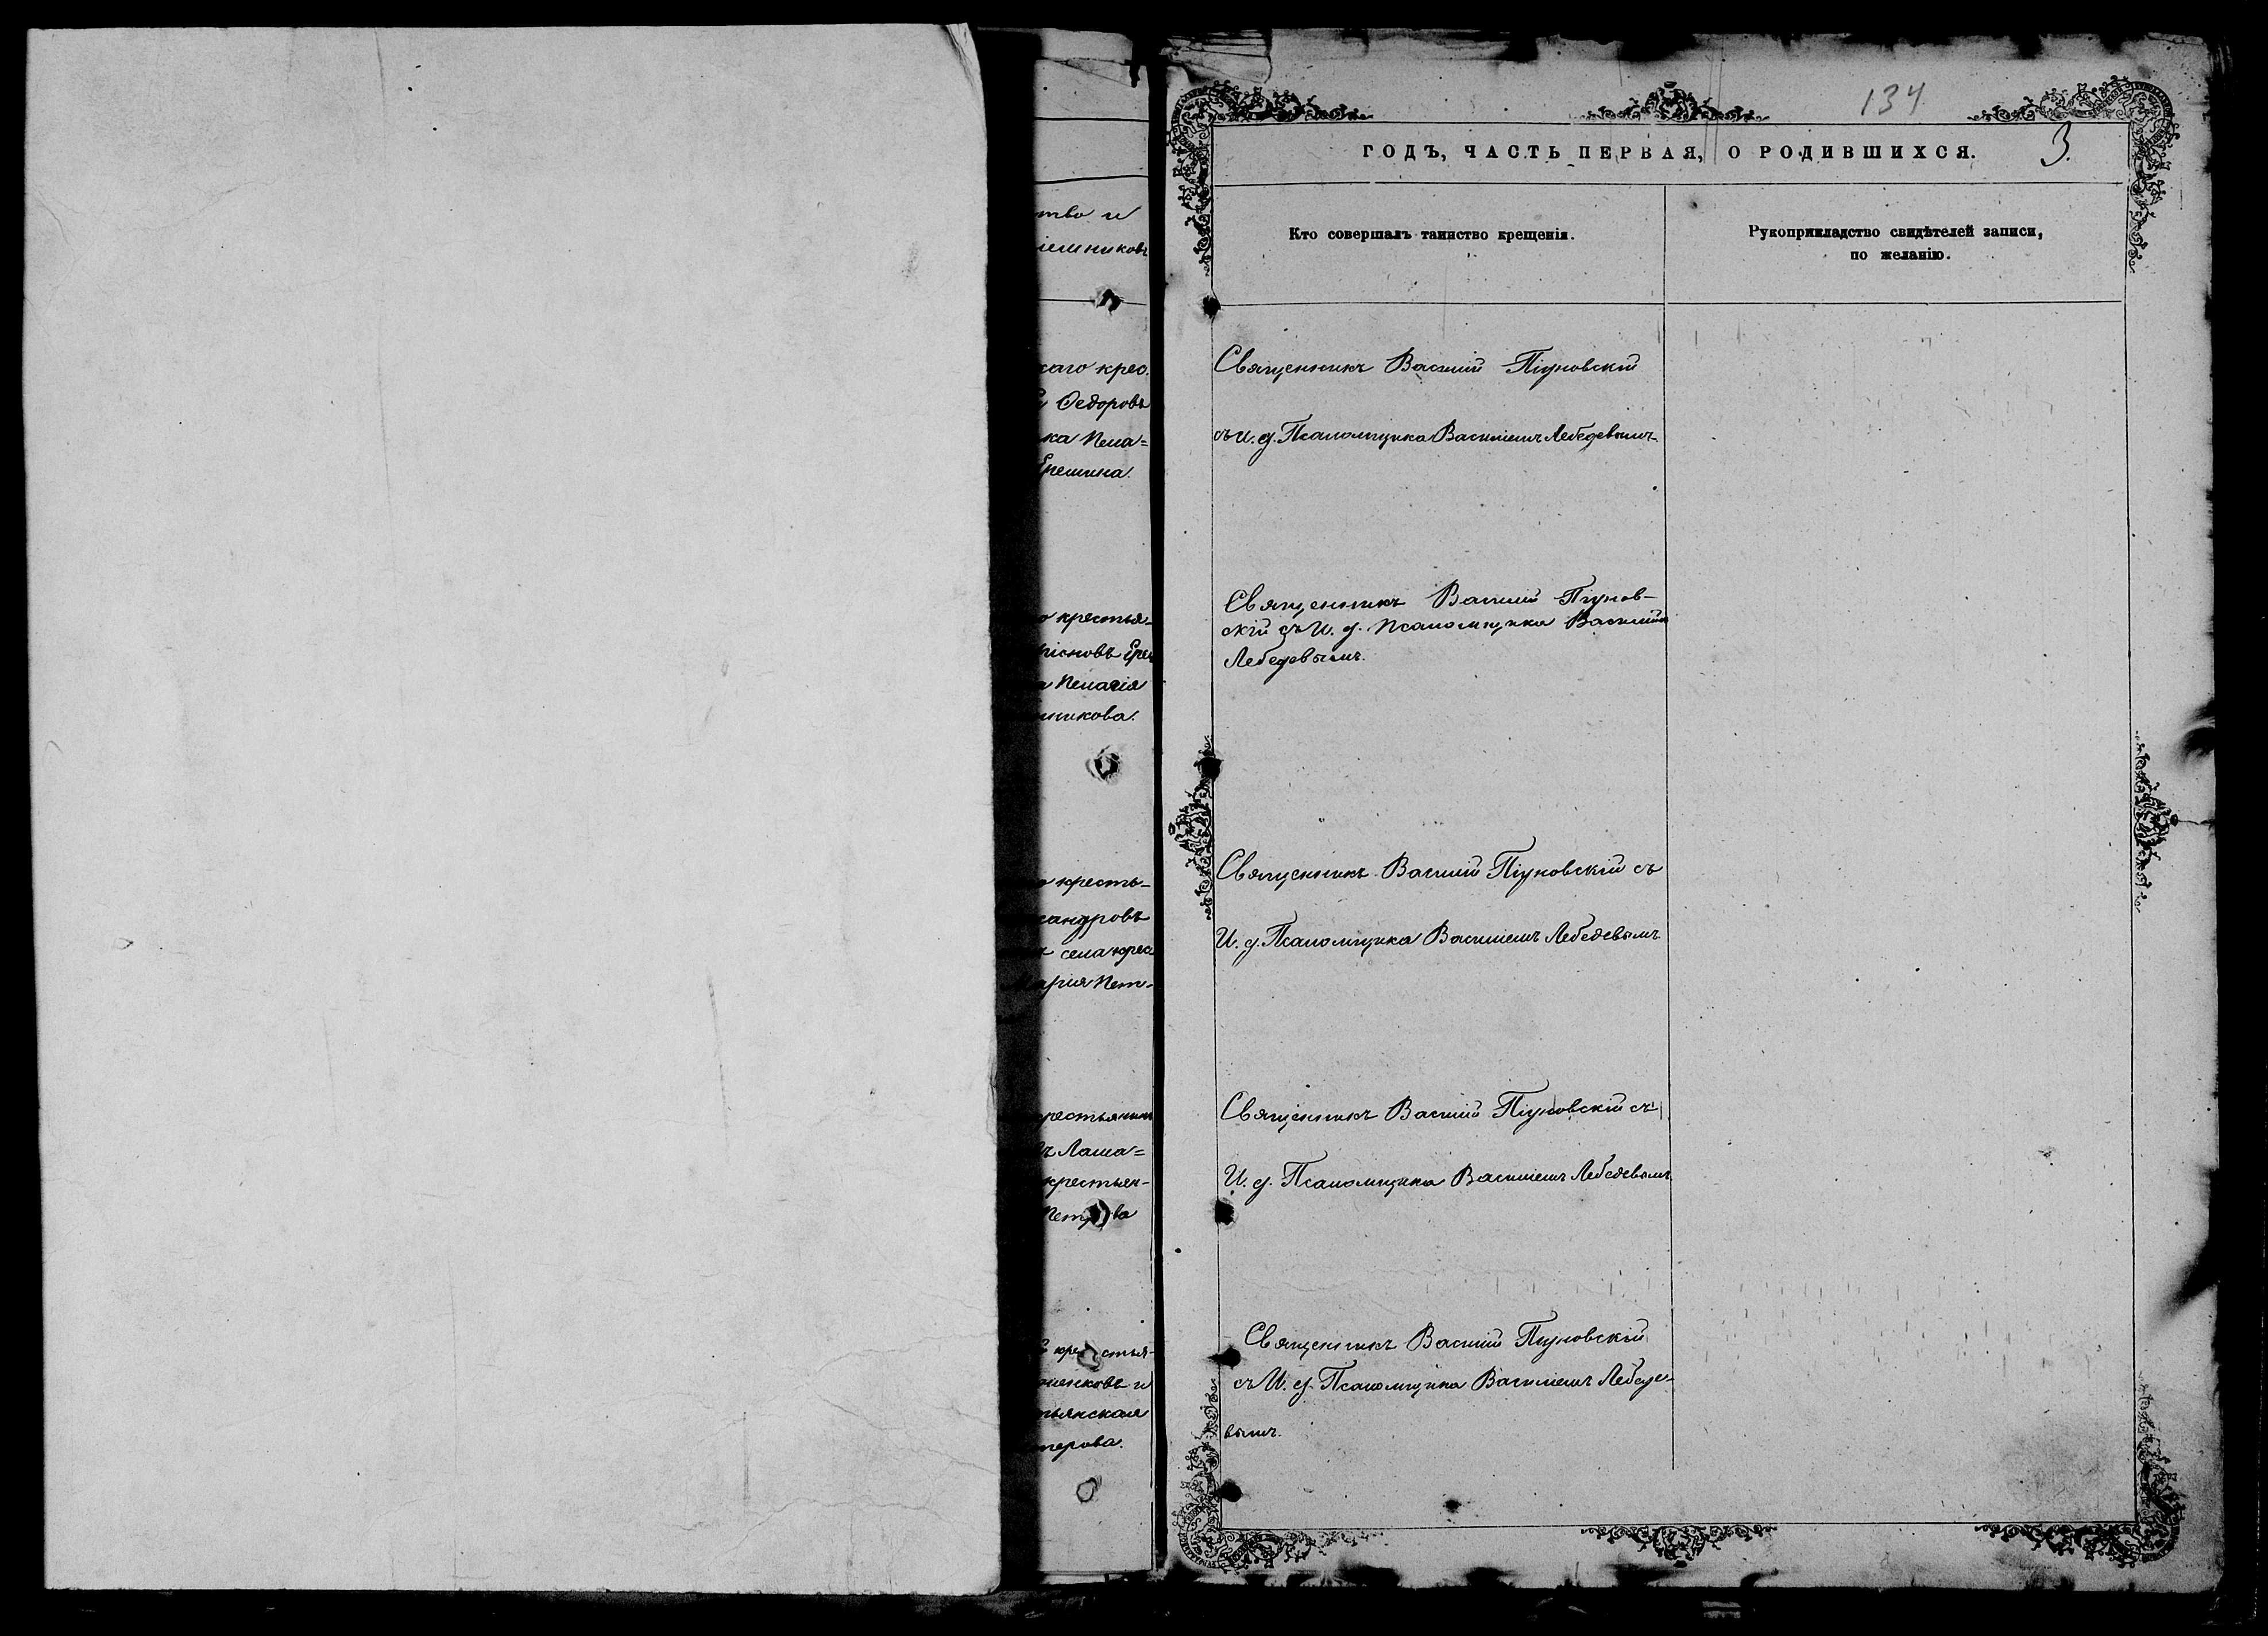 тво и
іемниковъ
каго крес.
Ѳедоровъ
ка Пела=
Грешина.
о крестья-
Пелагія
никова.
о кресть-
сандровъ
села крес
Марія Пет-
крестьянинъ
въ Лаша=
крестьян-
Петрова
крестья-
оненковъ и
тьянская
терова.
134
ГОДЪ, ЧАСТЬ ПЕРВАЯ, О РОДИВШИХСЯ.
3.
Кто совершалъ таинство крещенія.
Рукоприкладство свидѣтелей записи,
по желанію.
Священникъ Василій Піуновскій
съ И. д. Псаломщика Василіемъ Лебедевымъ
Священникъ Василій Піунов-
скій съ И. д. псаломщика Василіемъ
Лебедевымъ.
Священникъ Василій Піуновскій съ
И. д. Псаломщика Василіемъ Лебедевымъ
Священникъ Василій Піуновскій съ
И. д. Псаломщика Василіемъ Лебедевымъ
Священникъ Василій Піуновскій
съ И. д. Псаломщика Василіемъ Лебеде-
вымъ.